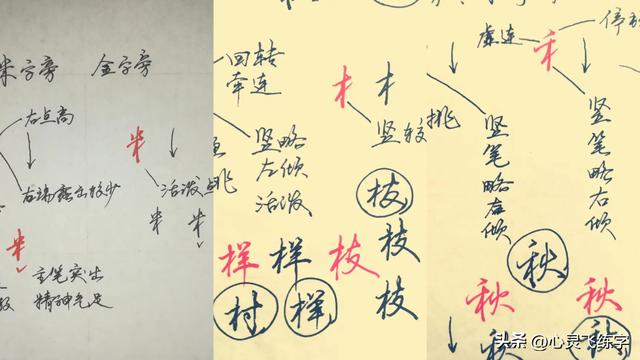 米字旁 金字旁
右点高
米
活泼
右端露出较少
米 米
米
主笔突出
精神气足
回转
牵连
竖略
左倾
活泼
挑
样 样
村 样
木 木
竖较挑
枝
枝 枝
枝
竖笔略右倾
秋
秋
秋
虚连
禾
竖笔略右倾
秋
头条 @心灵飞练字